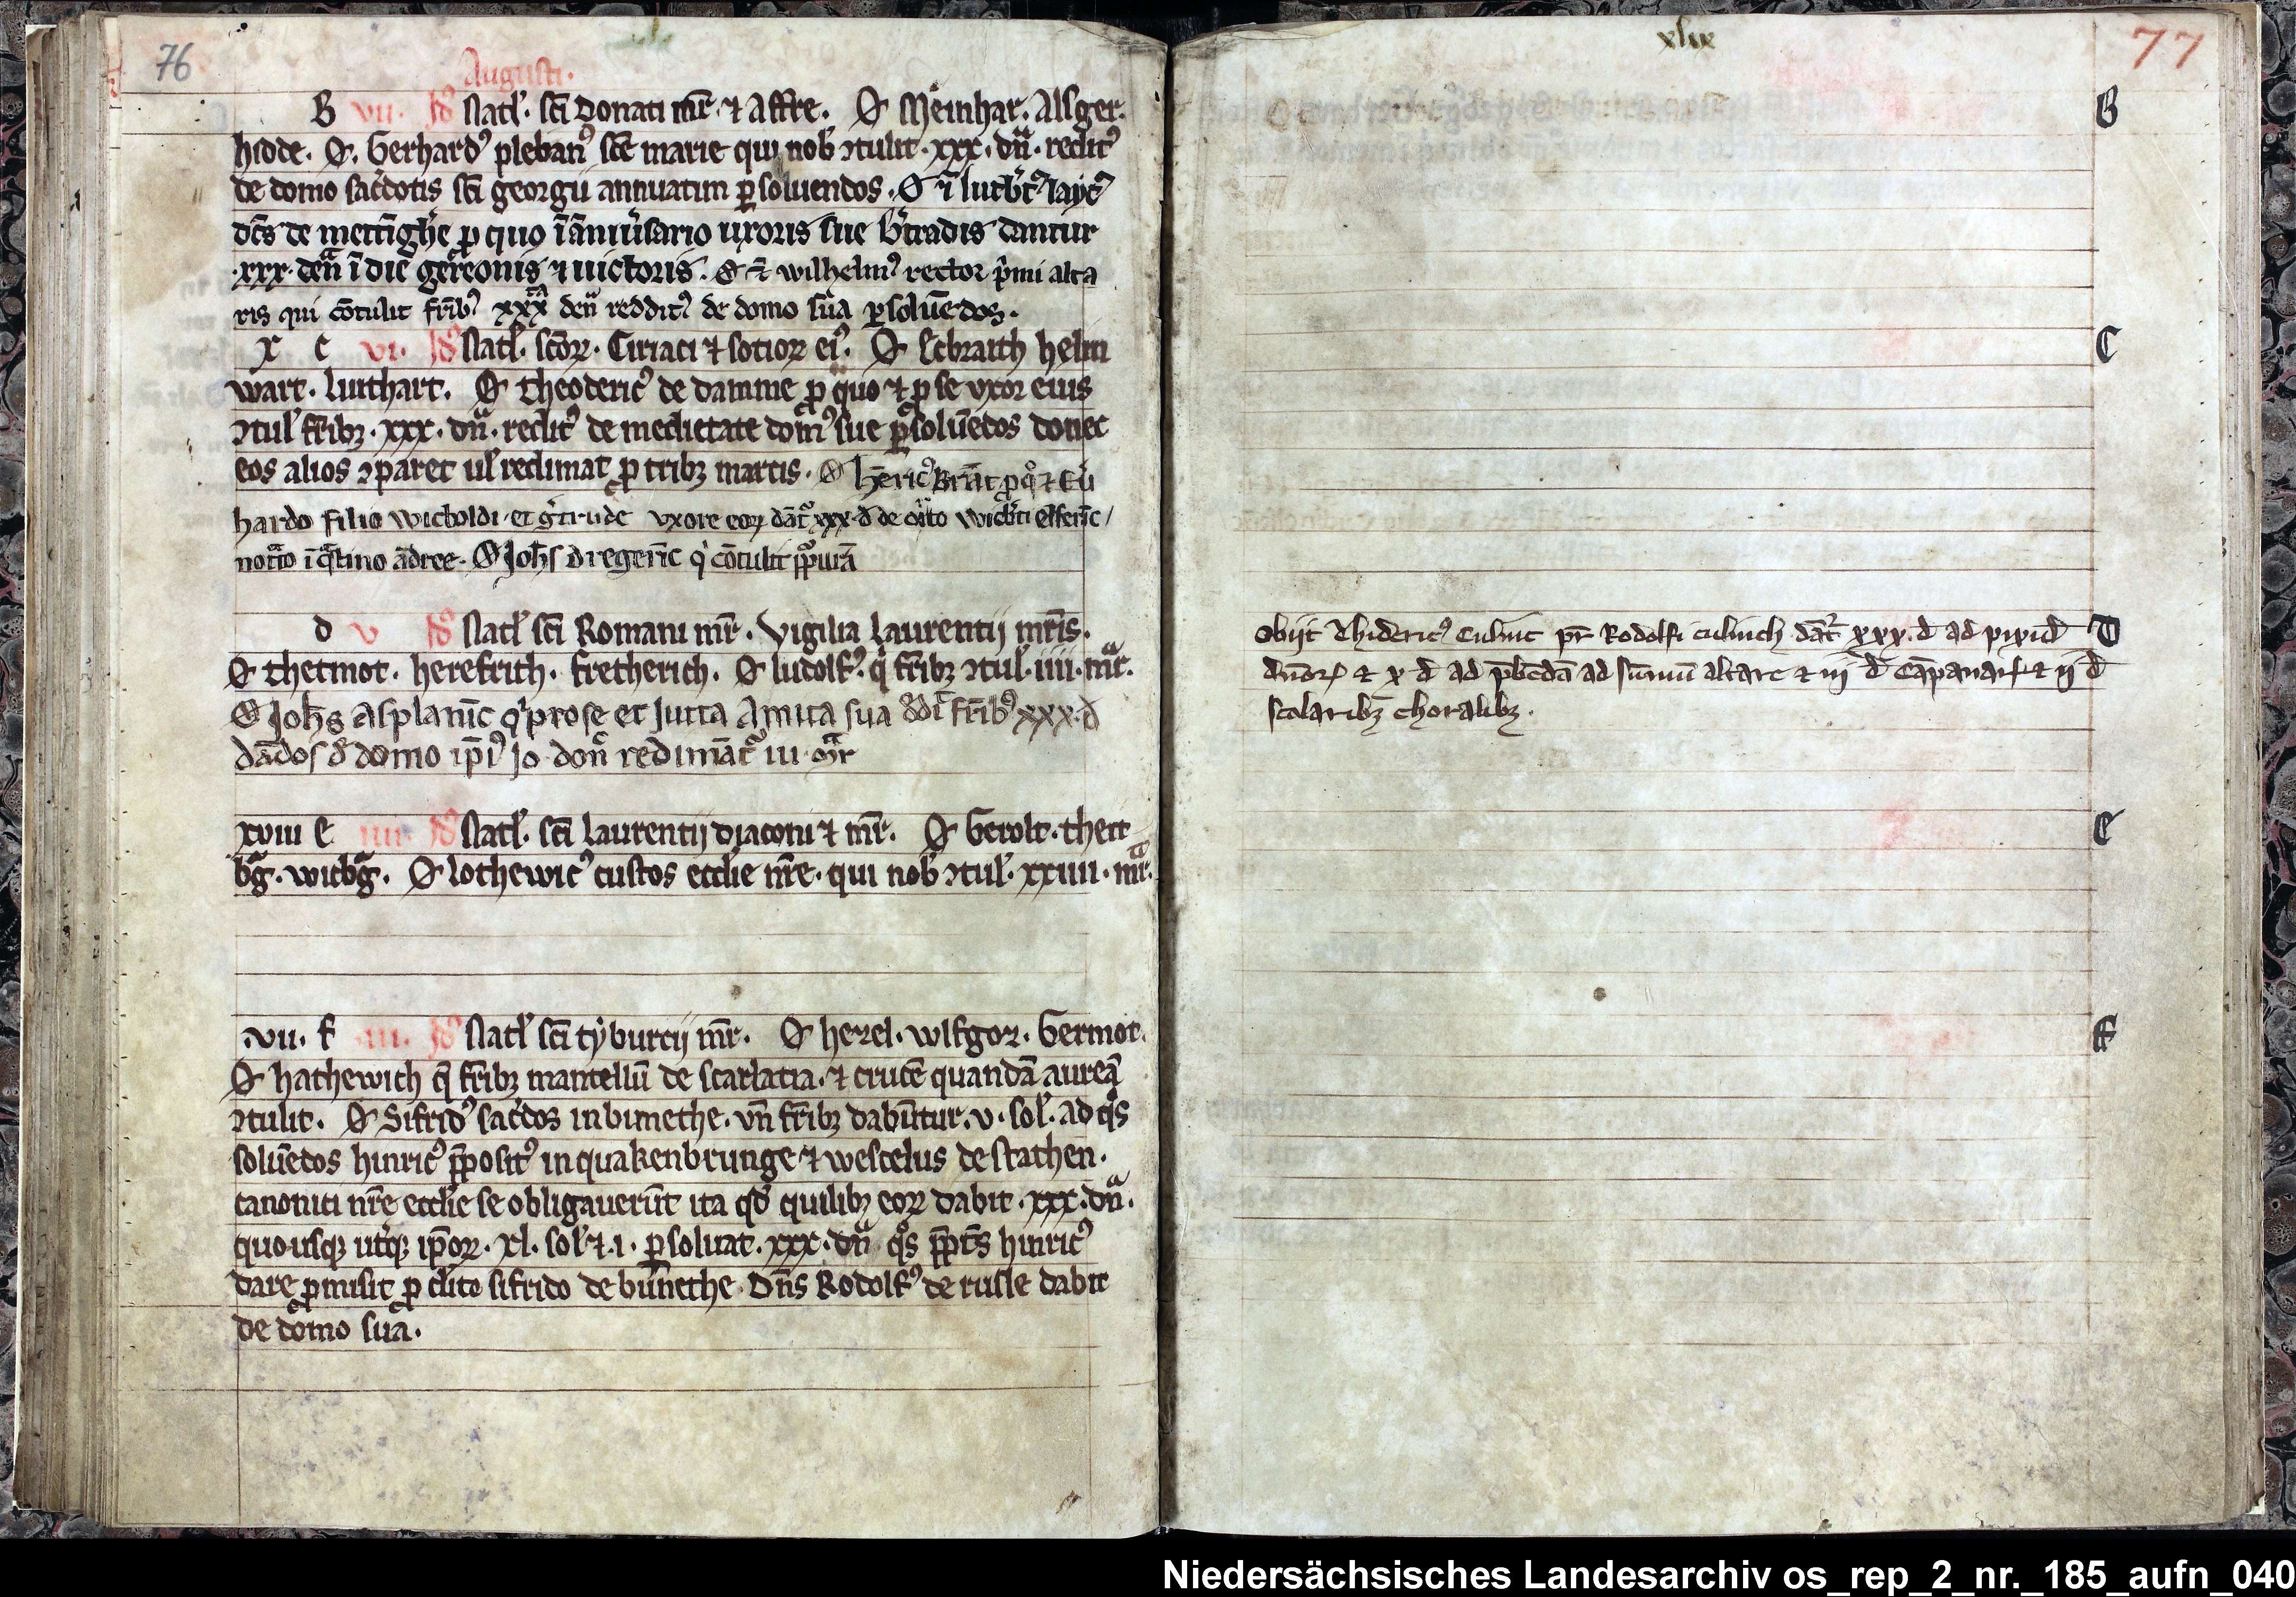 76
Augusti.
B vii. Id9 Natl'. sci Donati mr̄. ⁊ Affre. O Meinhar. Alsger.
hidde. O. Gerhard9 pleban9 sce marie qui nob' ꝯtulit. xxx. dn̄. reclit9
de domo sac'dotis sci georgii annuatim ꝑsoluendos. O
dc̄s de ꝑ quo ī āniu'sario uxoris sue b'tradis dantur
.xxx. den̄ ī die gereonis ⁊ uictoris. O wilhelm9 rector p'mi alta
ris qui cōtulit fr̄ib9 xxx den̄ reddit9 de domo sua ꝑsoluēdos.
x c vi. Id9 Natl'. scōꝝ. Ciriaci ⁊ sotioꝝ ei9. O Lebraith helm
wart. Luithart. O Theoderic9 de damme ꝓ quo ⁊ ꝓ se vxor eius
ꝯtul' fr̄ibꝫ. xxx. dn̄. redit9 de medietate dom9 sue ꝑsoluēdos donec
eos alios ꝯparet ul' redimat ꝓ tribꝫ marcis. O hēric9 Brāt ꝓ q° ⁊
hardo filio wicboldi et g'trude vxore eoꝝ dāt' xxx d de
ādree. O Joh̄s dregerīc q' cōtulit
d v Id9 Natl' sci Romani mr̄. Vigilia Laurentij mr̄is.
O Thetmot. herefrith. fretherich. O ludolf9. q' fr̄ibꝫ ꝯtul'. iiii. mr̄.
O Joh̄s asplanīc q' pro se et Jutta Amita sua fr̄ib9 xxx. d
dādos d' domo ip̄i9 Jo don̄ redimāt' iii mr̄
xviii e iiii. Id9 Natl'. sci Laurentij dyaconi ⁊ mr̄. O Gerolt. thett
b'g. wicb'g. O Lothewic9 custos ecclie nr̄e. qui nob' ꝯtul'. xxiiii. mr̄.
.vii. f iii. Id9 Natl' sci tyburcij mr̄. O hezel. wlfgor. Germot.
O hathewich q̄ fr̄ibꝫ mantellū de scarlatia. ⁊ crucē quandā aureā
ꝯtulit. O Sifrid9 sac'dos in bunethe. vn̄ fr̄ibꝫ dabūtur. v. sol'. ad q°s
soluēdos hinric9 p̄posit9 in quakenbrunge ⁊ wescelus de stathen.
canonici nr̄e ecclie se obligauerūt ita qd' quilibꝫ eoꝝ dabit. xxx. dn̄.
quousqꝫ ut'qꝫ ip̄oꝝ. xl. sol' ⁊. i. ꝑsoluat. xxx. dn̄ q°s p̄pt̄s hinric9
dare ꝓmisit ꝓ dicto sifrido de būnethe. Dn̄s Rodolf9 de rusle dabit
de domo sua.
xlix
77
B
C
Obijt Thideric9 Culinc pr̄ Rodolfi culinch dāt' xxx. d ad pixid D
dn̄oꝝ ⁊ x d ad p̄bēdā ad sūmū altare ⁊ iij d cāpanar' ⁊ ij d
scolaribꝫ choralibꝫ.
E
F
Niedersächsisches Landesarchiv os_rep_2_nr._185_aufn_040